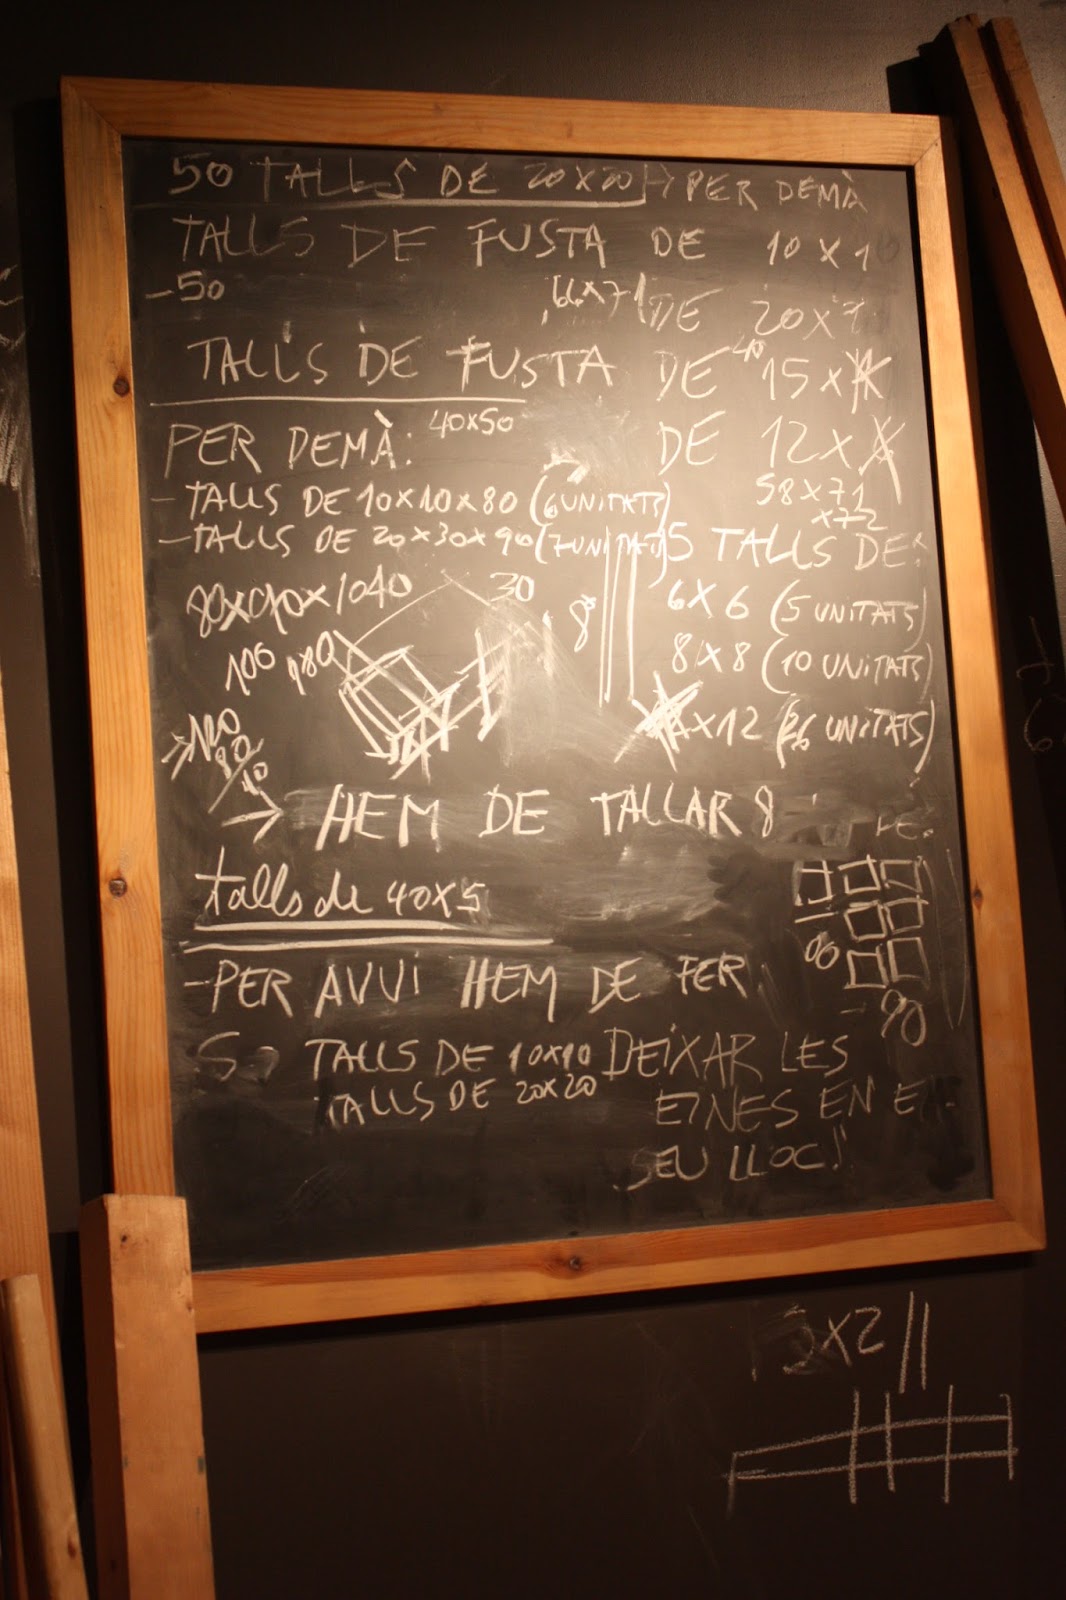 50 TALLS DE 20X20 → PER DEMÀ
TALLS DE FUSTA DE 10 X 1
-50
66X71
DE 20X
TALLS DE FUSTA DE 15 X
40
PER DEMÀ: 40X50
DE 12 X
58X71
X72
- TALLS DE 10X10X80 (6 UNITATS)
- TALLS DE 20X30X90 (7 UNITATS)
5 TALLS DE:
6X6 (5 UNITATS)
8X8 (10 UNITATS)
X12 (26 UNITATS)
30
8
100
→ 120
90
10
→ HEM DE TALLAR 8
talls de 40X5
- PER AVUI HEM DE FER
TALLS DE 10X10
TALLS DE 20X20
DEIXAR LES
EINES EN E
SEU LLOC!
90
2X2